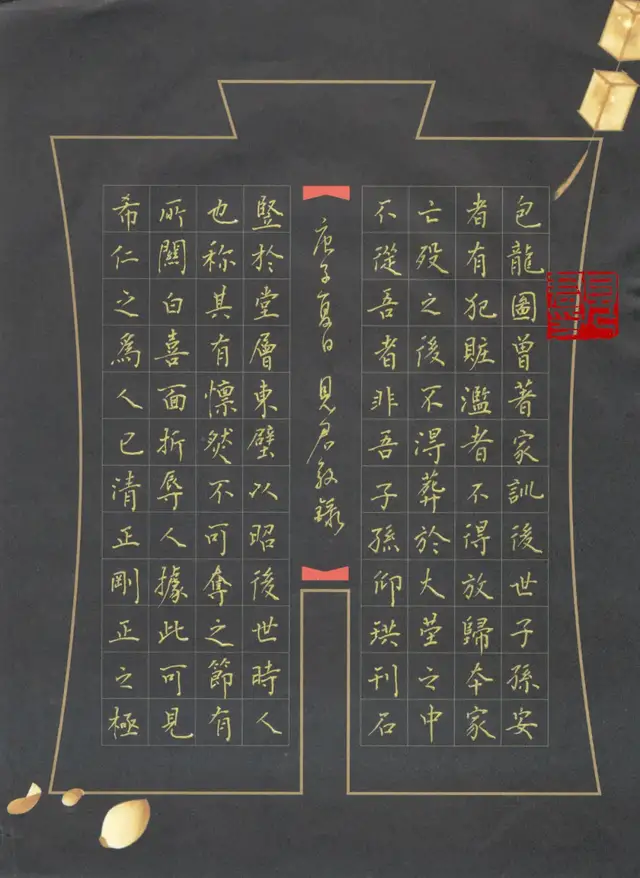 包龍圖曾著家訓後世子孫安
者有犯賍濫者不得放歸本家
亡殁之後不淂葬於大塋之中
不從吾者非吾子孫仰珙刊石
庚子夏日 見君敬錄
竪於堂層東壁以昭後世時人
也称其有懔然不可奪之節有
所關白喜面折辱人據此可見
希仁之爲人已清正剛正之極